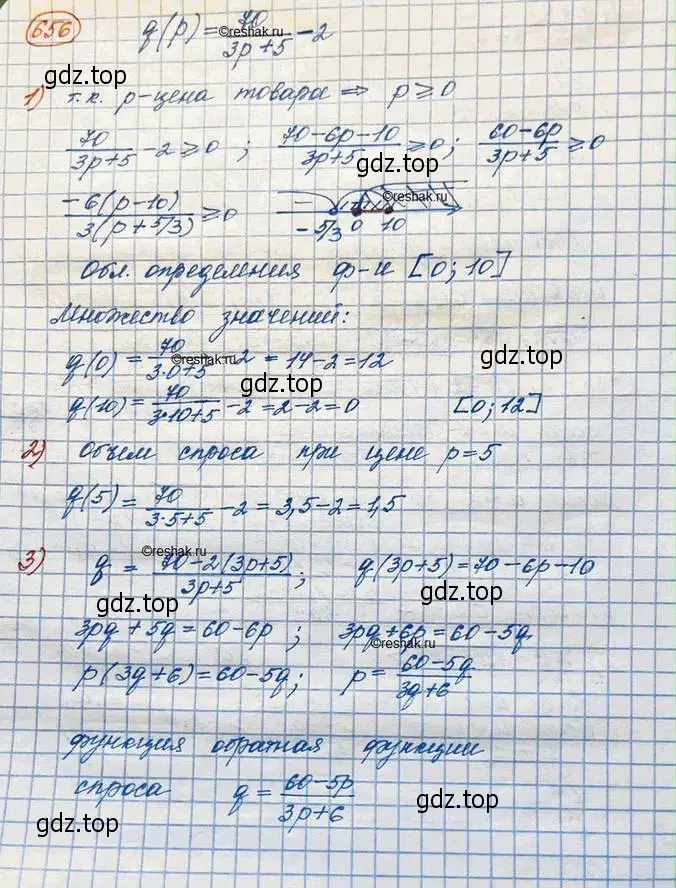 656 q(p) = 70/(3p+5) - 2
©reshak.ru
gdz.top
1) т.к. p-цена товара ⇒ p ≥ 0
70/(3p+5) - 2 ≥ 0 ; (70-6p-10)/(3p+5) ≥ 0 ; (60-6p)/(3p+5) ≥ 0
©reshak.ru
gdz.top
-6(p-10)/3(p+5/3) ≥ 0 − -5/3 0 10
©reshak.ru
Обл. определения ф-и [0; 10]
gdz.top
Множество значений:
q(0) = 70/(3·0+5) - 2 = 14-2 = 12
©reshak.ru
gdz.top
q(10) = 70/(3·10+5) - 2 = 2-2 = 0 [0; 12]
gdz.top
2) Объем спроса при цене p = 5
q(5) = 70/(3·5+5) - 2 = 3,5-2 = 1,5
gdz.top
3) q = (70-2(3p+5))/(3p+5) ; q(3p+5) = 70-6p-10
©reshak.ru
gdz.top
gdz.top
3pq + 5q = 60-6p ; 3pq + 6p = 60-5q
©reshak.ru
p(3q+6) = 60-5q ; p = (60-5q)/(3q+6)
функция обратная функции
спроса q = (60-5p)/(3p+6)
gdz.top
gdz.top